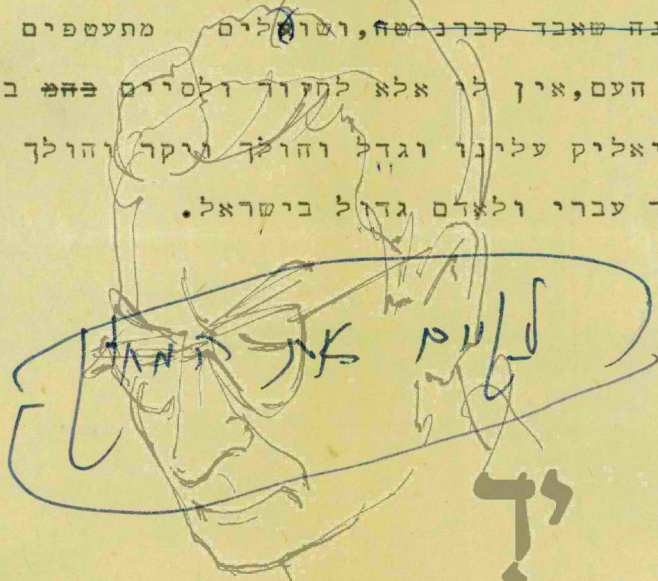 שאבד קברניטה, ושועלים מתעטפים
העם, אין לי אלא לחזור ולסיים בהם ב
יאליק עלינו וגדל והולך ויקר והולך
ר עברי ולאדם גדול בישראל.
את
יד